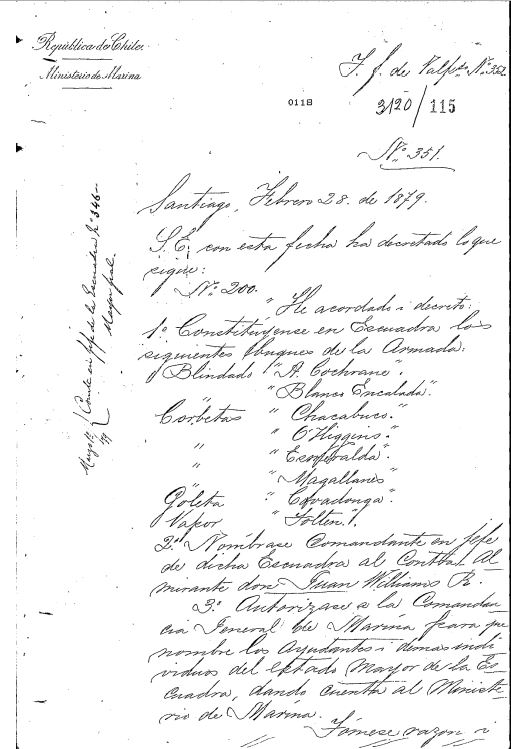 República de Chile.
Ministerio de Marina
I. f. de Valpso. No. 352
0118
3120/115
No. 351.
Santiago, Febrero 28. de 1879.
S. E. con esta fecha ha decretado lo que
sigue:
No. 200.
"He acordado i decreto:
1o. Constitúyense en Escuadra los
siguientes buques de la Armada:
Blindado "A. Cochrane".
" "Blanco Encalada".
Corbetas " Chacabuco."
" " O'Higgins."
" " Esmeralda".
" " Magallanes"
Goleta " Covadonga".
Vapor " Tolten".
2o. Nómbrase Comandante en Jefe
de dicha Escuadra al Contra Al
mirante don Juan Williams R.
3o. Autorízase a la Comandan
cia Jeneral de Marina para que
nombre los Ayudantes i demas indi
viduos del Estado Mayor de la Es
cuadra, dando cuenta al Ministe
rio de Marina.
Tómese razon i
Marzo
Comte. en jefe de la Escuadra No. 346—
Mayor jral.